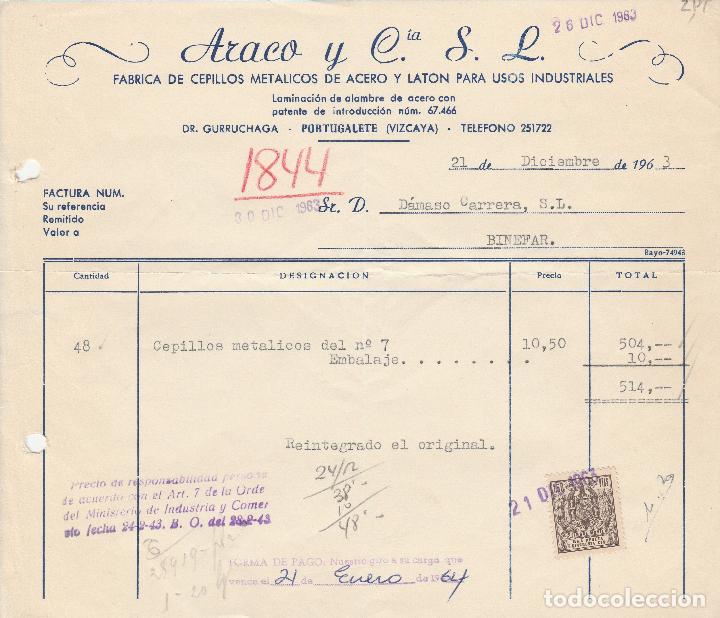 26 DIC 1963
Araco y Cía S. L.
FABRICA DE CEPILLOS METALICOS DE ACERO Y LATON PARA USOS INDUSTRIALES
Laminación de alambre de acero con
patente de introducción núm. 67.466
DR. GURRUCHAGA - PORTUGALETE (VIZCAYA) - TELEFONO 251722
21 de Diciembre de 1963
1844
30 DIC 1963
FACTURA NUM.
Su referencia
Remitido
Valor a
Sr. D. Dámaso Carrera, S.L.
BINEFAR.
Bayo-74948
Cantidad DESIGNACION Precio TOTAL
48 Cepillos metalicos del nº 7 10,50 504,--
Embalaje. . . . . . . . 10,--
514,--
Reintegrado el original.
24/12
38'-
10
48'-
Precio de responsabilidad persona
de acuerdo con el Art. 7 de la Orde
del Ministerio de Industria y Comer
sto fecha 24-2-43. B. O. del 28-2-43
21 DIC 1963
FORMA DE PAGO: Nuestro giro a su cargo, que
vence el 21 de Enero de 1964
1-20
todocoleccion
todocoleccion.net